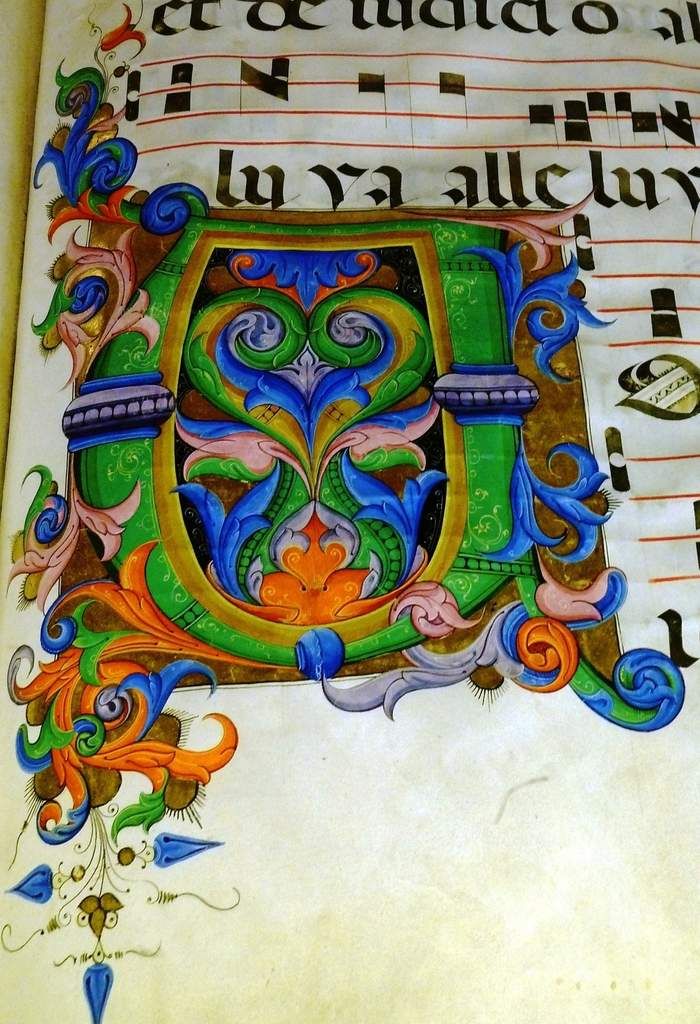 et de iudicio al
lu ya alleluy
U